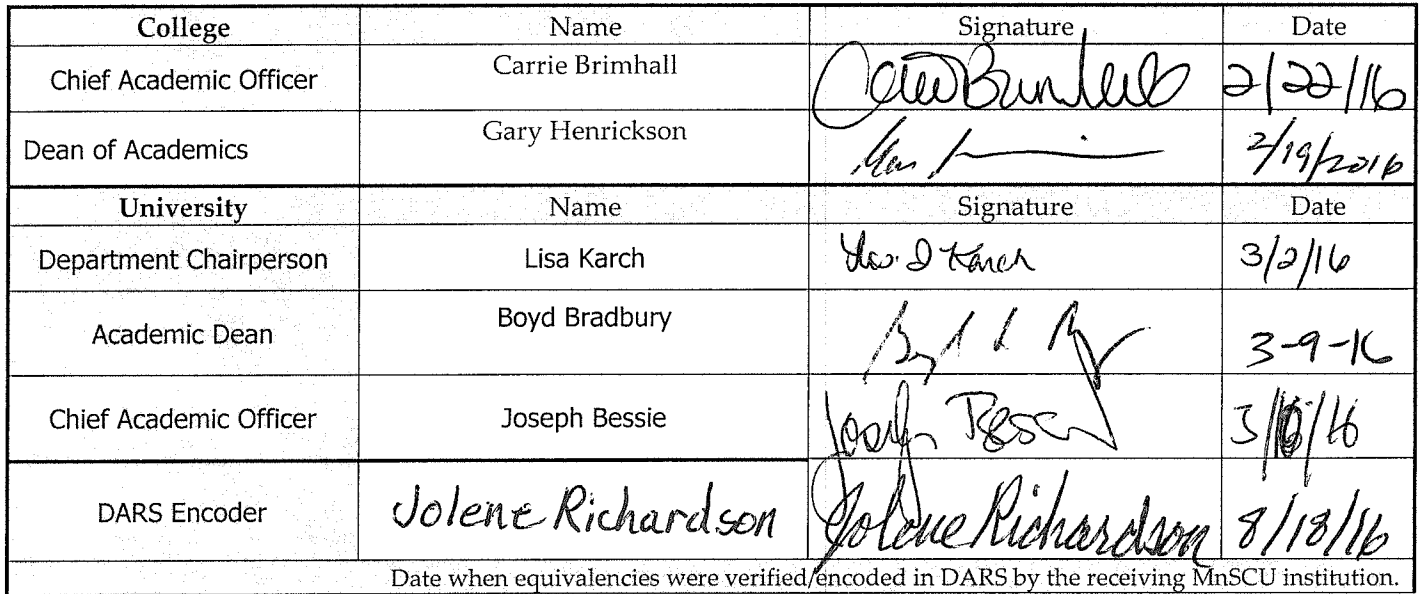 College Name Signature Date
Chief Academic Officer Carrie Brimhall Carrie Brimhall 2/22/16
Dean of Academics Gary Henrickson 2/19/2016
University Name Signature Date
Department Chairperson Lisa Karch Lisa J Karch 3/2/16
Academic Dean Boyd Bradbury 3-9-16
Chief Academic Officer Joseph Bessie Joseph Bessie
DARS Encoder Jolene Richardson Jolene Richardson 8/18/16
Date when equivalencies were verified/encoded in DARS by the receiving MnSCU institution.